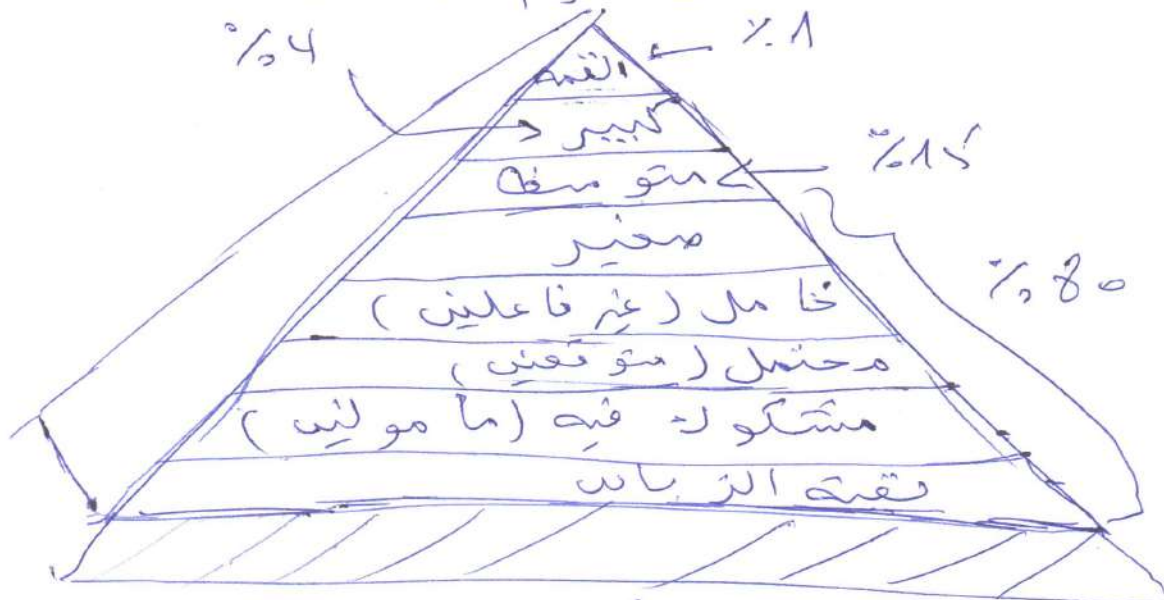 %4
%1
القمه
كبير
%15
متوسط
صغير
%80
خامل (غير فاعلين)
محتمل (متوقعين)
مشكوك فيه (مأمولين)
بقية الزبائن